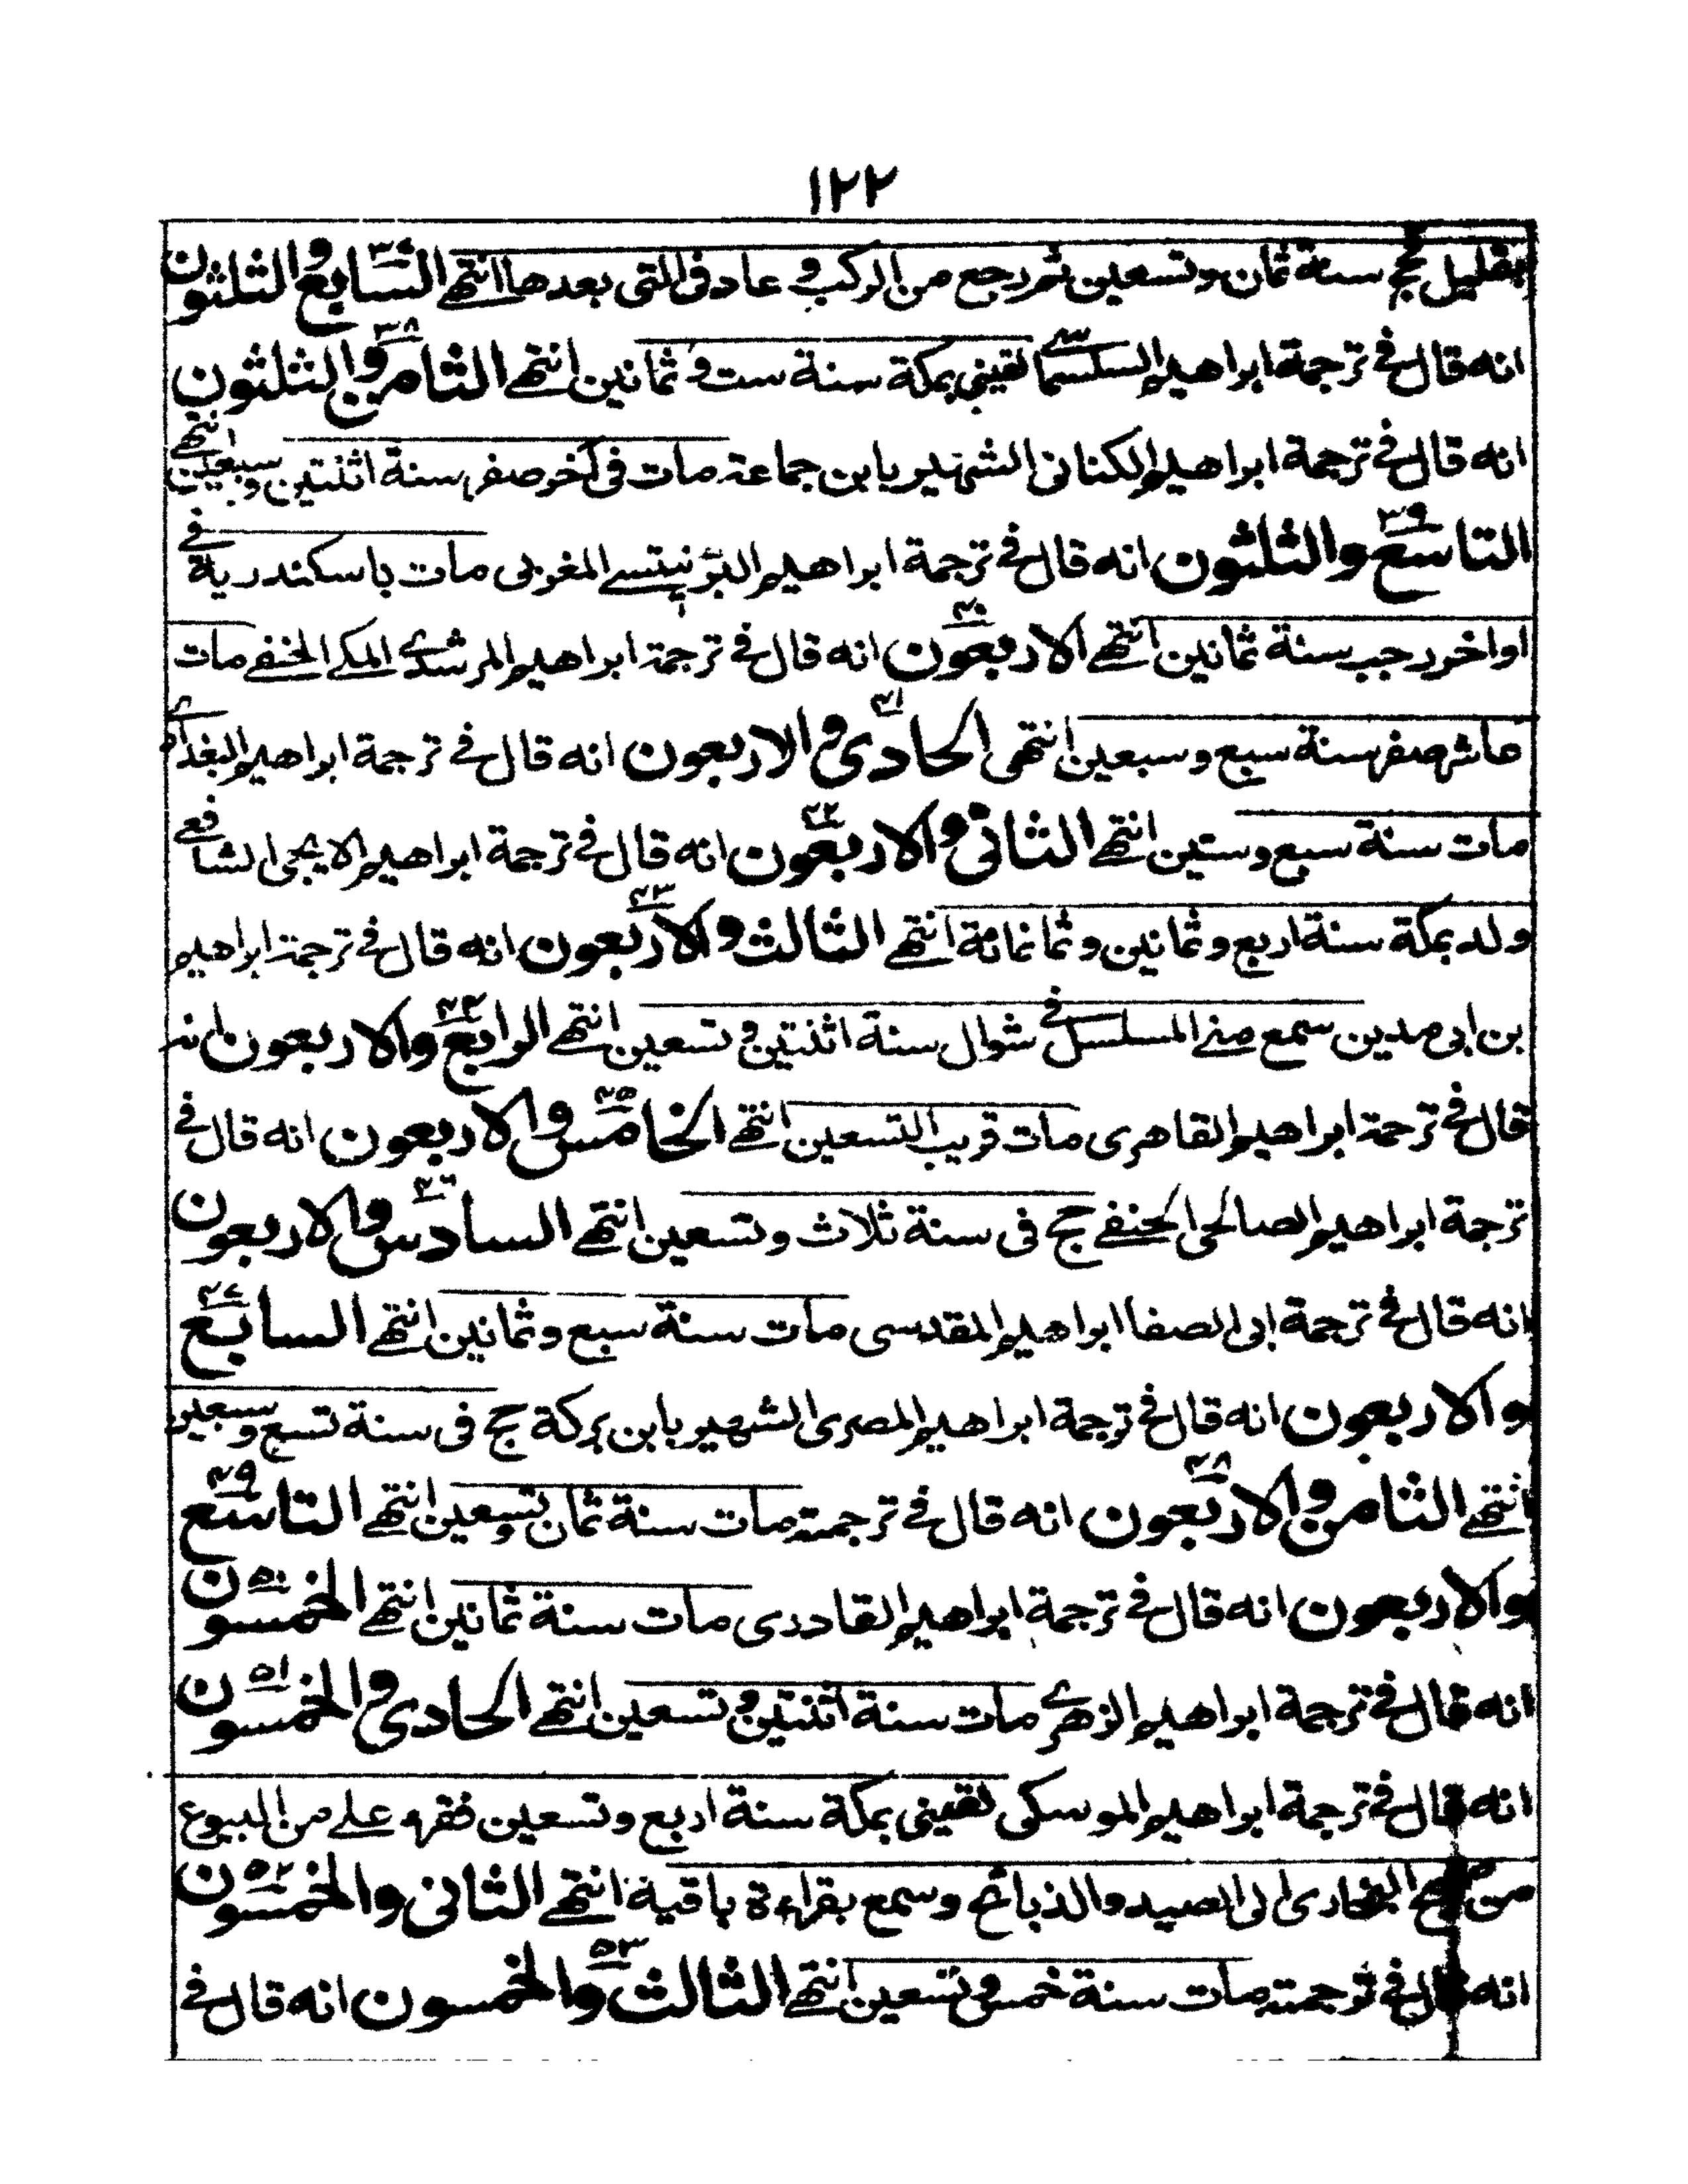 ١٢٢
بقليل حج سنة ثمان وتسعين ثم رجع من الركب و عاد فى التى بعدها انتهى السابع والثلثون ٣٧
انه قال فى ترجمة ابراهيم السلسى لقينى بمكة سنة ست و ثمانين انتهى الثامن والثلثون ٣٨
انه قال فى ترجمة ابراهيم الكنانى الشهير بابن جماعة مات فى آخر صفر سنة اثنتين وسبعين انتهى
التاسع والثلثون ٣٩ انه قال فى ترجمة ابراهيم المغربى مات باسكندرية فى
اواخر رجب سنة ثمانين انتهى الاربعون ٤٠ انه قال فى ترجمة ابراهيم المرشدى المكى الحنفى مات
عاشر صفر سنة سبع وسبعين انتهى الحادى والاربعون ٤١ انه قال فى ترجمة ابراهيم البغدادى
مات سنة سبع وستين انتهى الثانى والاربعون ٤٢ انه قال فى ترجمة ابراهيم الايجى الشافعى
ولد بمكة سنة اربع وثمانين وثمانمائة انتهى الثالث والاربعون ٤٣ انه قال فى ترجمة ابراهيم
بن ابى مدين سمع منى المسلسل فى شوال سنة اثنتين وتسعين انتهى الرابع والاربعون ٤٤ انه
قال فى ترجمة ابراهيم القاهرى مات قريب التسعين انتهى الخامس والاربعون ٤٥ انه قال فى
ترجمة ابراهيم الصالحى الحنفى حج فى سنة ثلاث وتسعين انتهى السادس والاربعون ٤٦
انه قال فى ترجمة ابى الصفا ابراهيم المقدسى مات سنة سبع وثمانين انتهى السابع ٤٧
والاربعون انه قال فى ترجمة ابراهيم المصرى الشهير بابن بركة حج فى سنة تسع وسبعين
انتهى الثامن والاربعون ٤٨ انه قال فى ترجمته مات سنة ثمان وتسعين انتهى التاسع ٤٩
والاربعون انه قال فى ترجمة ابراهيم القادرى مات سنة ثمانين انتهى الخمسون ٥٠
انه قال فى ترجمة ابراهيم الزهرى مات سنة اثنتين وتسعين انتهى الحادى والخمسون ٥١
انه قال فى ترجمة ابراهيم الموسكى لقينى بمكة سنة اربع وتسعين فقرء على من البيوع
من البخارى الى الصيد والذبائح وسمع بقراءة باقية انتهى الثانى والخمسون ٥٢
انه قال فى ترجمته مات سنة خمس وتسعين انتهى الثالث والخمسون ٥٣ انه قال فى